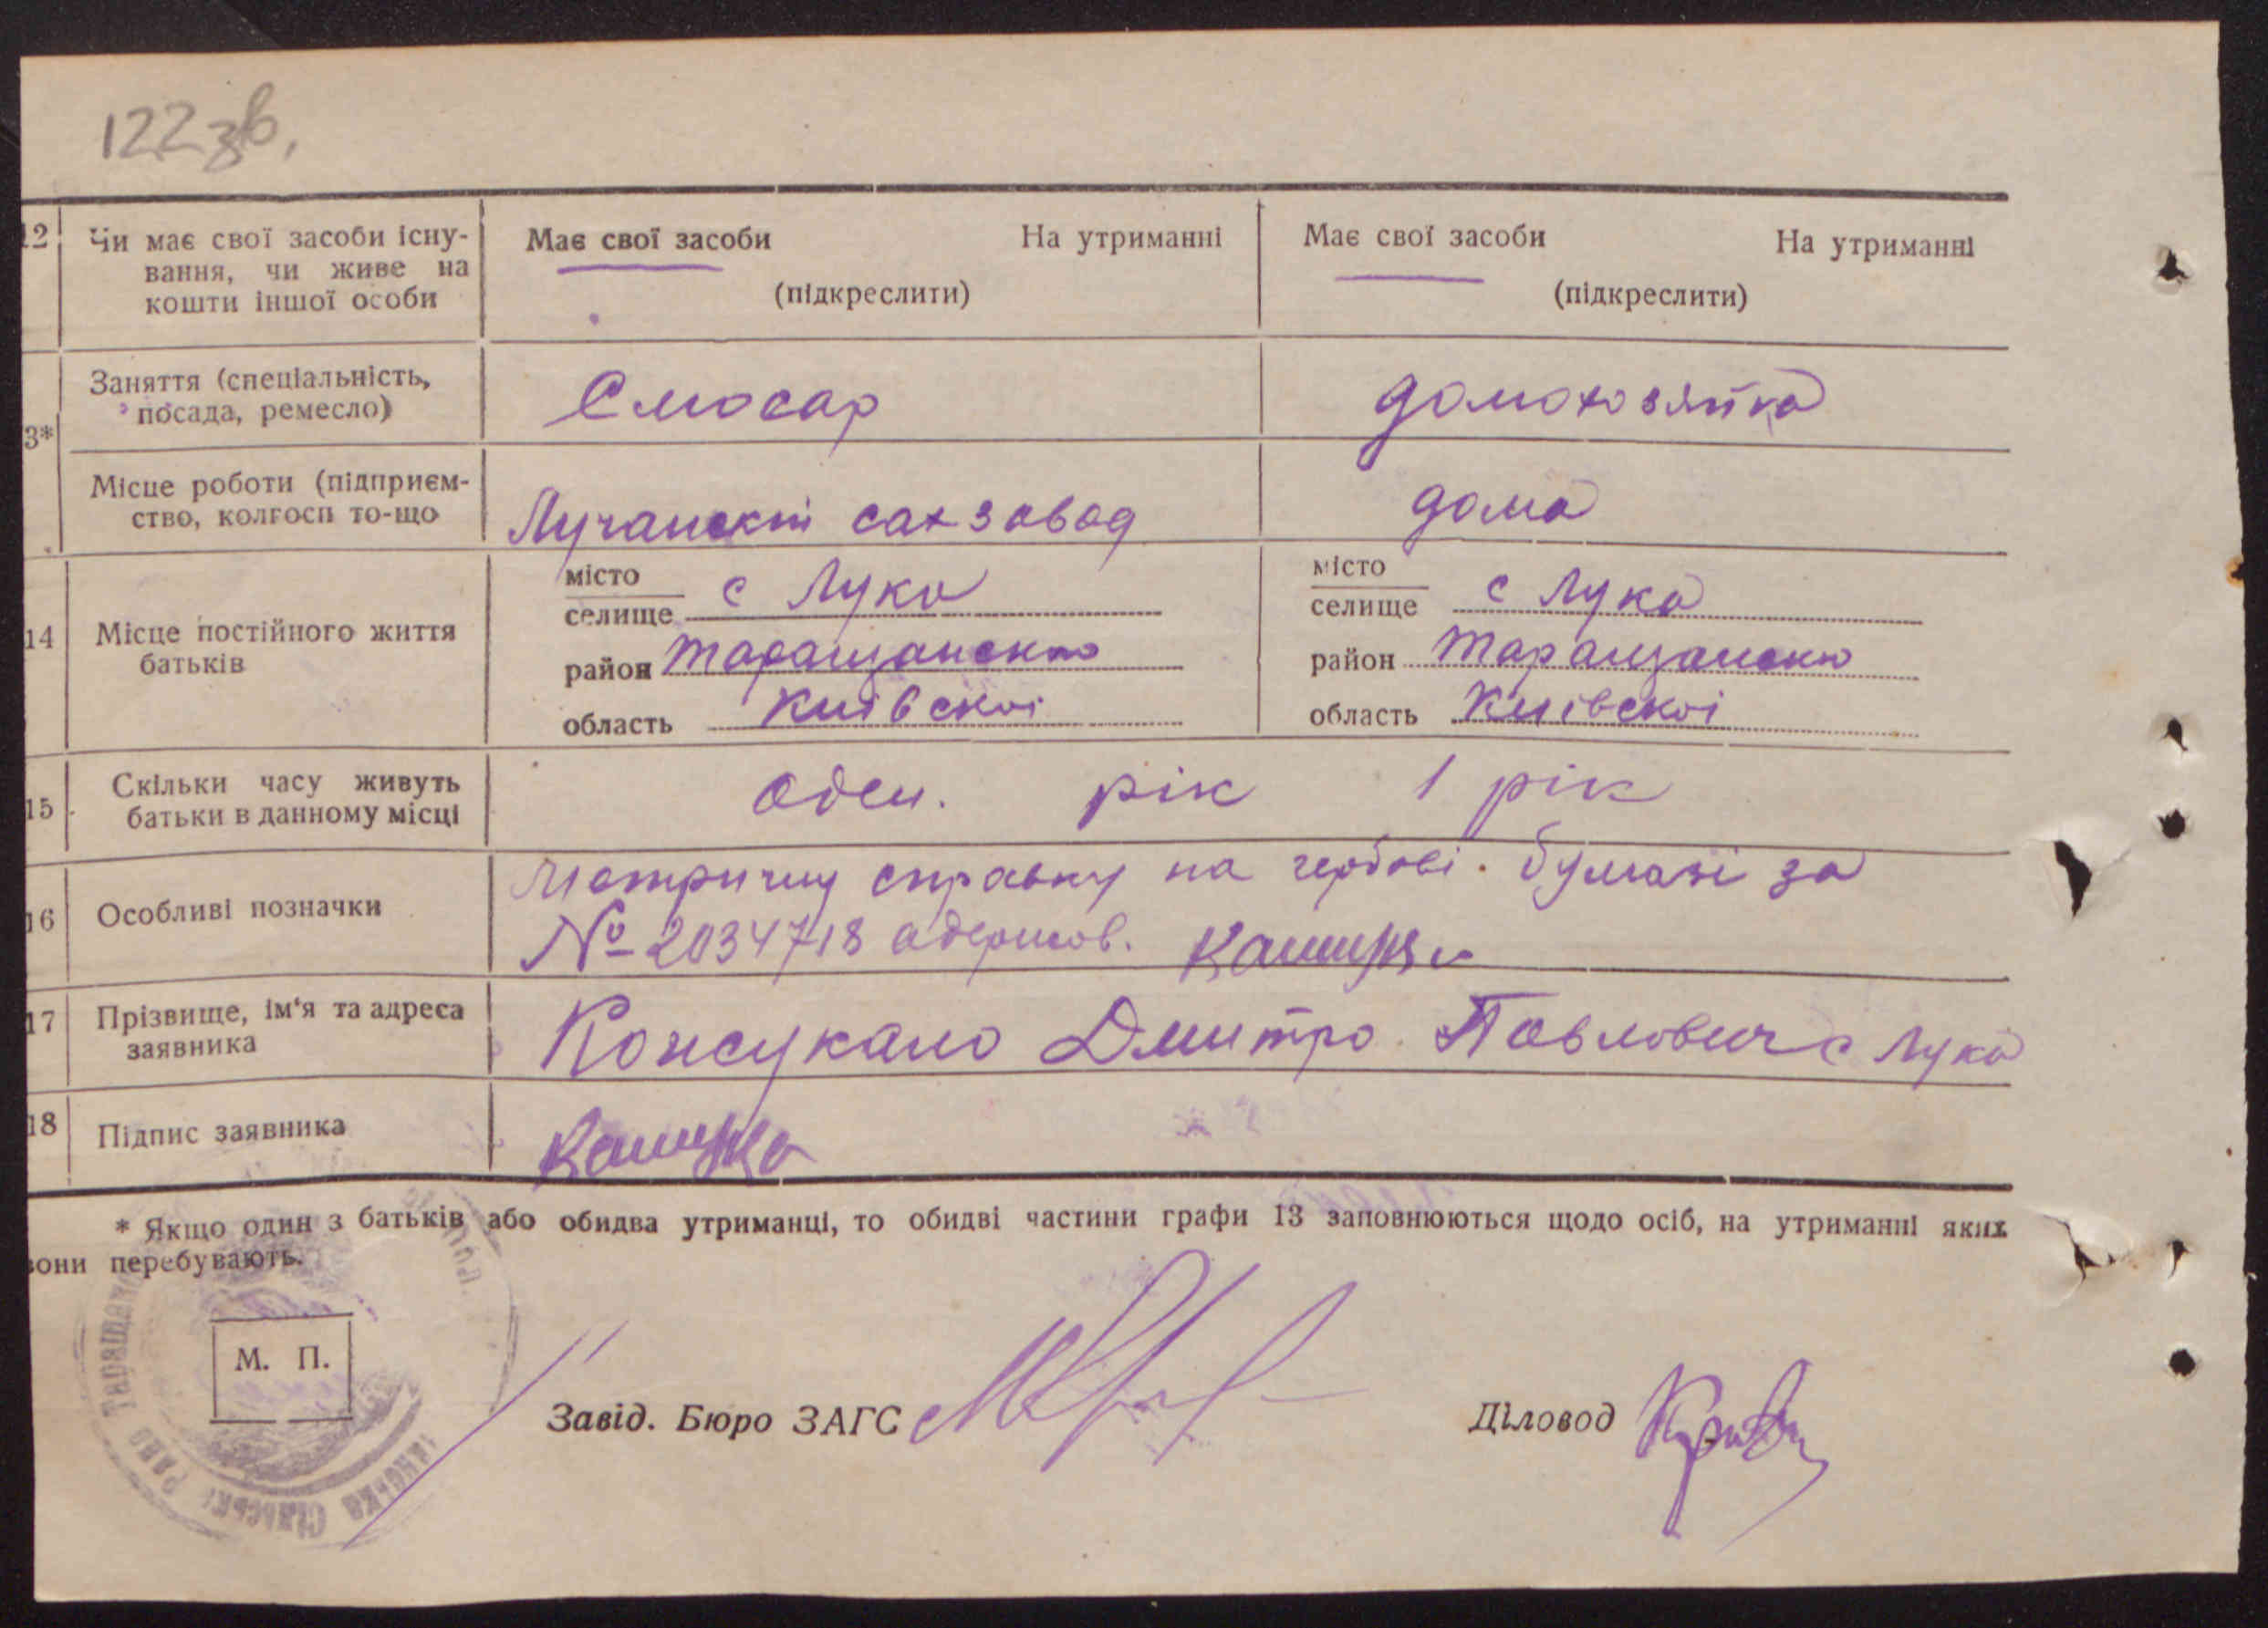 122 зв.
12 Чи має свої засоби існу- Має свої засоби На утриманні Має свої засоби На утриманні
вання, чи живе на (підкреслити) (підкреслити)
кошти іншої особи
Заняття (спеціальність, Слюсар домохозяйка
посада, ремесло)
3*
Місце роботи (підприєм-
ство, колгосп то-що Лучанский сахзавод дома
місто місто
селище с Лука селище с Лука
14 Місце постійного життя район Таращанского район Таращанско
батьків
область Київскоі область Київскоі
15 Скільки часу живуть оден. рік 1 рік
батьки в данному місці
16 Особливі позначки Метричну справку на гербові. бумазі за
№ 2034718 одержов.
17 Прізвище, ім'я та адреса Дмитро Павлович с Лука
заявника
18 Підпис заявника
* Якщо один з батьків або обидва утриманці, то обидві частини графи 13 заповнюються щодо осіб, на утриманні яких
вони перебувають.
М. П.
Завід. Бюро ЗАГС Діловод